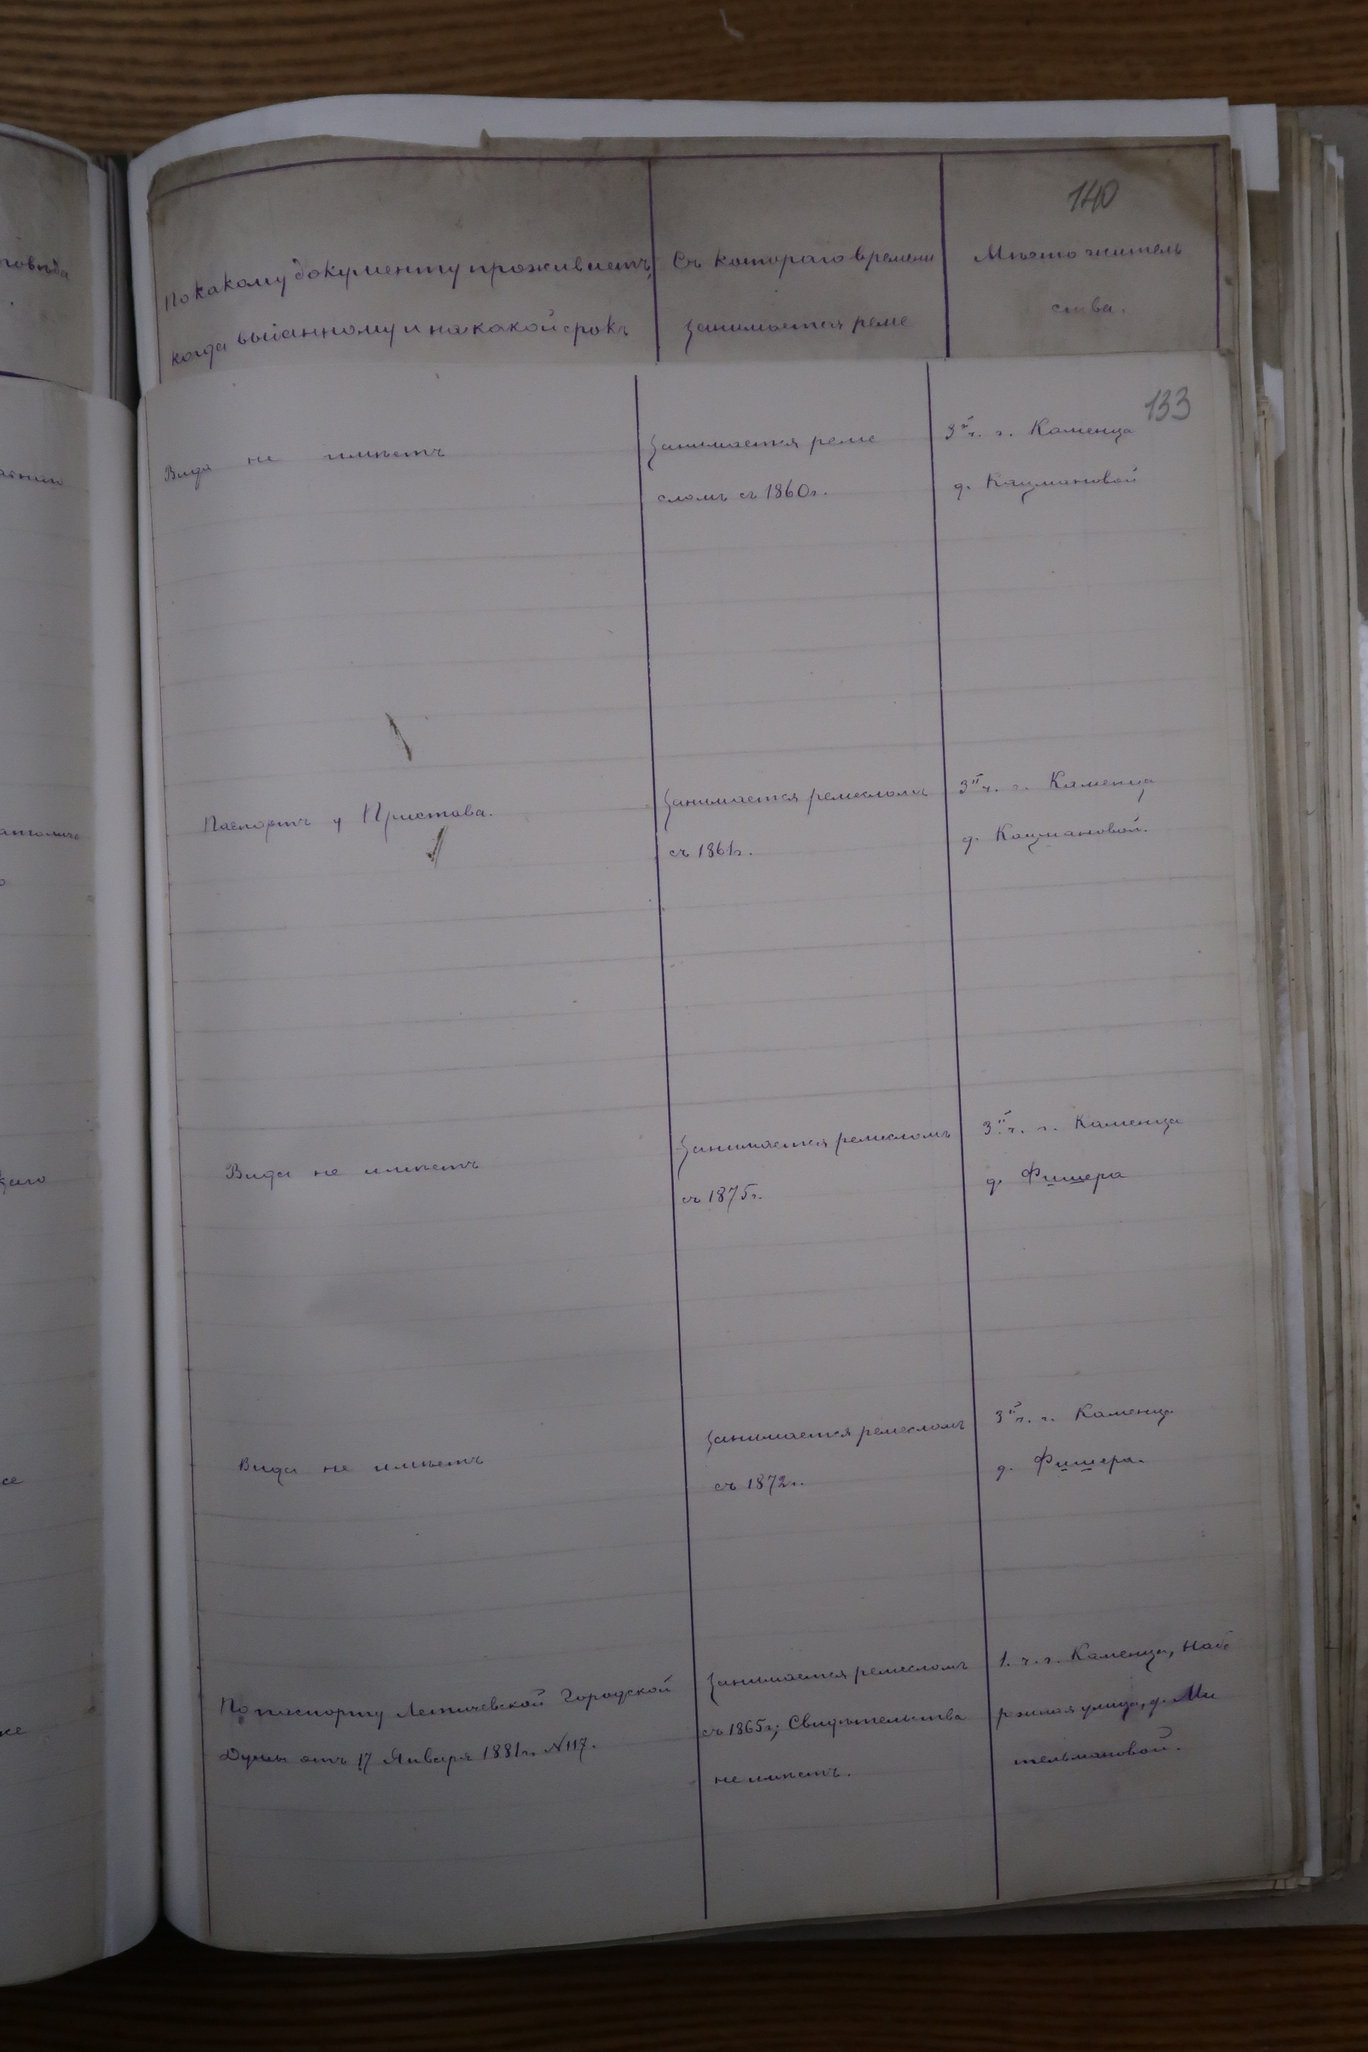 140
По какому документу проживаетъ,
когда выданному и на какой срокъ
Съ котораго времени
занимается реме
Мѣсто житель
ства.
133
Вида не имѣетъ
Занимается реме
сломъ съ 1860 г.
3й ч. г. Каменца
д. Кацмановой
Паспортъ у Пристава.
Занимается ремесломъ
съ 1861 г.
3й ч. г. Каменца
д. Кацмановой.
Вида не имѣетъ
Занимается ремесломъ
съ 1875 г.
3й ч. г. Каменца
д. Фишера
Вида не имѣетъ
Занимается ремесломъ
съ 1872 г.
3й ч. г. Каменца
д. Фишера.
По паспорту Летичевской Городской
Думы отъ 17 Января 1881 г. № 117.
Занимается ремесломъ
съ 1865 г.; Свидѣтельства
не имѣетъ.
1. ч. г. Каменца, Набе
режная улица, д. Ми
тельмановой.